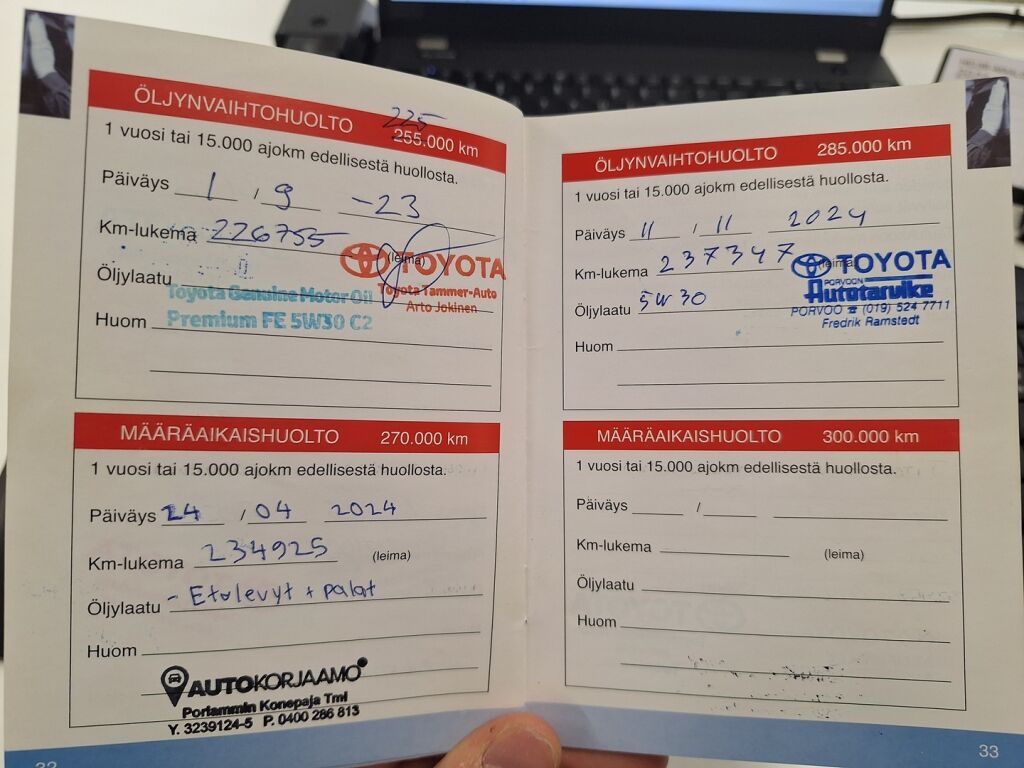 ÖLJYNVAIHTOHUOLTO 255.000 km
225
1 vuosi tai 15.000 ajokm edellisestä huollosta.
Päiväys 1 / 9 -23
Km-lukema 226755 (leima)
TOYOTA
Toyota Tammer-Auto
Arto Jokinen
Öljylaatu
Toyota Genuine Motor Oil
Premium FE 5W30 C2
Huom
MÄÄRÄAIKAISHUOLTO 270.000 km
1 vuosi tai 15.000 ajokm edellisestä huollosta.
Päiväys 24 / 04 2024
Km-lukema 234925 (leima)
Öljylaatu - Etulevyt + palat
Huom
AUTOKORJAAMO
Portammin Konepaja Tmi
Y. 3239124-5 P. 0400 286 813
32
ÖLJYNVAIHTOHUOLTO 285.000 km
1 vuosi tai 15.000 ajokm edellisestä huollosta.
Päiväys 11 / 11 2024
Km-lukema 237347 (leima)
TOYOTA
PORVOON
Autotarvike
PORVOO ☎ (019) 524 7711
Fredrik Ramstedt
Öljylaatu 5W30
Huom
MÄÄRÄAIKAISHUOLTO 300.000 km
1 vuosi tai 15.000 ajokm edellisestä huollosta.
Päiväys /
Km-lukema (leima)
Öljylaatu
Huom
33